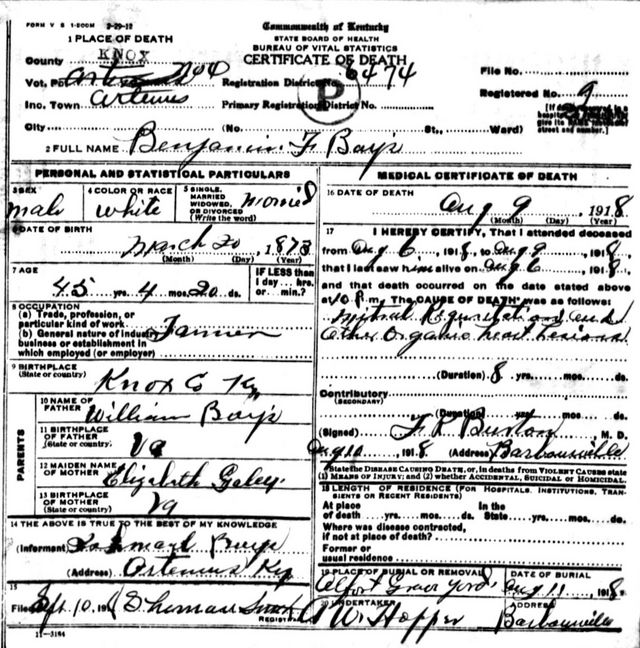 FORM V S 1-500M 3-29-12
1 PLACE OF DEATH
Commonwealth of Kentucky
STATE BOARD OF HEALTH
BUREAU OF VITAL STATISTICS
CERTIFICATE OF DEATH
County KNOX
Vot. Pct. No 4
Registration District No. 6474
File No.
Inc. Town Artemus
Primary Registration District No.
P
Registered No. 9
City (No. St., Ward)
2 FULL NAME Benjamin F Bays
PERSONAL AND STATISTICAL PARTICULARS
3 SEX male
4 COLOR OR RACE White
5 SINGLE, MARRIED WIDOWED, OR DIVORCED (Write the word)
6 DATE OF BIRTH
March 20, 1873
(Month) (Day) (Year)
7 AGE
45 yrs. 4 mos. 20 ds.
IF LESS than 1 day... hrs. or min.?
8 OCCUPATION
(a) Trade, profession, or particular kind of work
(b) General nature of industry business or establishment in which employed (or employer)
Farmer
9 BIRTHPLACE
(State or country) Knox Co Ky
PARENTS
10 NAME OF FATHER William Bays
11 BIRTHPLACE OF FATHER (State or country) Va
12 MAIDEN NAME OF MOTHER Elizabeth
13 BIRTHPLACE OF MOTHER (State or country) Va
14 THE ABOVE IS TRUE TO THE BEST OF MY KNOWLEDGE
(Informant) Bays
(Address) Artemus Ky
15
Filed Sept. 10, 191 Thomas
REGISTRAR
11-3184
MEDICAL CERTIFICATE OF DEATH
16 DATE OF DEATH
Aug 9, 1918
(Month) (Day) (Year)
17 I HEREBY CERTIFY, That I attended deceased
from Aug 6, 1918, to Aug 9, 1918,
that I last saw him alive on Aug 6, 1918,
and that death occurred on the date stated above
at 10 P.m. The CAUSE OF DEATH* was as follows:
Mitral Regurgitation and
Other Organic heart Lesions
(Duration) 8 yrs. mos. ds.
Contributory
(SECONDARY)
(Duration) yrs. mos. ds.
(Signed) F. R. Burton M. D.
Aug 10, 1918 (Address) Barbourville
*State the DISEASE CAUSING DEATH, or, in deaths from VIOLENT CAUSES state
(1) MEANS OF INJURY; and (2) whether ACCIDENTAL, SUICIDAL or HOMICIDAL.
18 LENGTH OF RESIDENCE (FOR HOSPITALS, INSTITUTIONS, TRANSIENTS OR RECENT RESIDENTS)
At place of death yrs. mos. ds. In the State yrs. mos. ds.
Where was disease contracted,
if not at place of death?
Former or
usual residence
19 PLACE OF BURIAL OR REMOVAL Grave Yard
DATE OF BURIAL Aug 11, 1918
20 UNDERTAKER W. Hopper
ADDRESS Barbourville